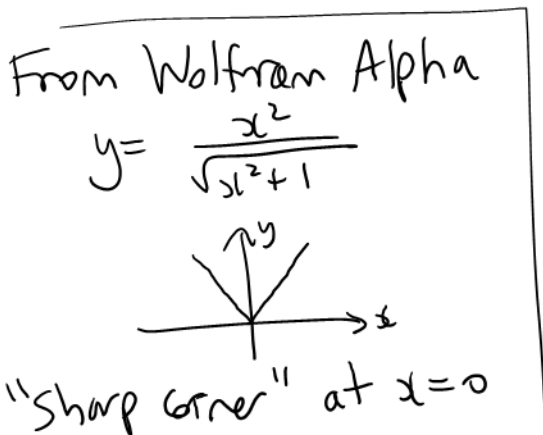 From Wolfram Alpha
y= x²/√(x²+1)
y
x
"sharp corner" at x=0